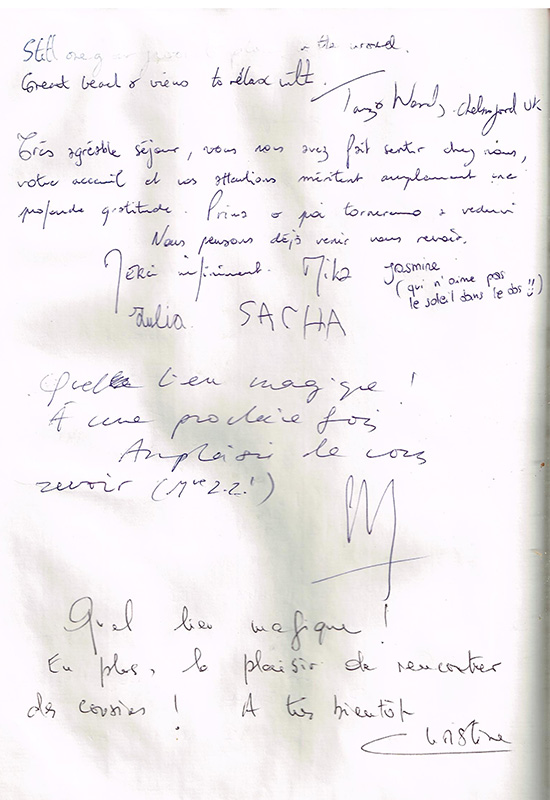 Still one of
in the world.
Great beach & views to relax with.
Ward, Chelmsford UK
Très agréable séjour, vous nous avez fait sentir chez nous,
votre accueil et vos attentions méritent amplement une
profonde gratitude. Prima o poi torneremo a vedervi
Nous pensons déjà venir vous revoir.
Merci infiniment. Mika Jasmine
(qui n'aime pas
le soleil dans le dos !!)
Julia SACHA
Quel lieu magique !
À une prochaine fois
Au plaisir de vous
revoir
Quel lieu magique !
En plus, le plaisir de rencontrer
des cousins ! A très bientôt
Christine